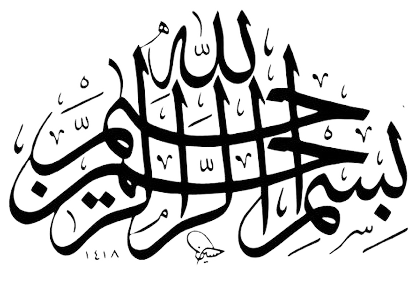 بسم الله الرحمن الرحيم
١٤١٨